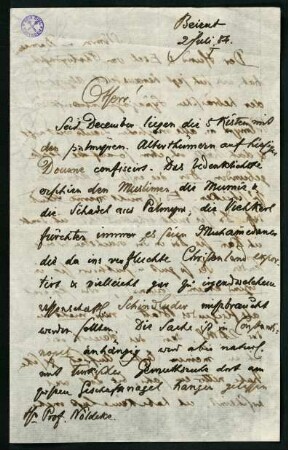 Beirut
2 Juli 84.
Herr!
Seit December liegen die 5 Kisten mit
den palmyren. Alterthümern auf hiesiger
Douane confiscirt. Das Bedenklichste
erschien den Muslimen die Mumie u
die Schädel aus Palmyra, die
fürchten immer es seien Muhamedaner
die da ins verfluchte Christenland expor-
tirt & vielleicht gar zu irgendwelchem
Schindluder missbraucht
werden sollten. Die Sache ist in Constant.
anhängig wird aber natürl.
mit türkischer Gemüthsruhe dort am
grossen Geschäftsnagel hangen gelassen
H. Prof. Nöldeke